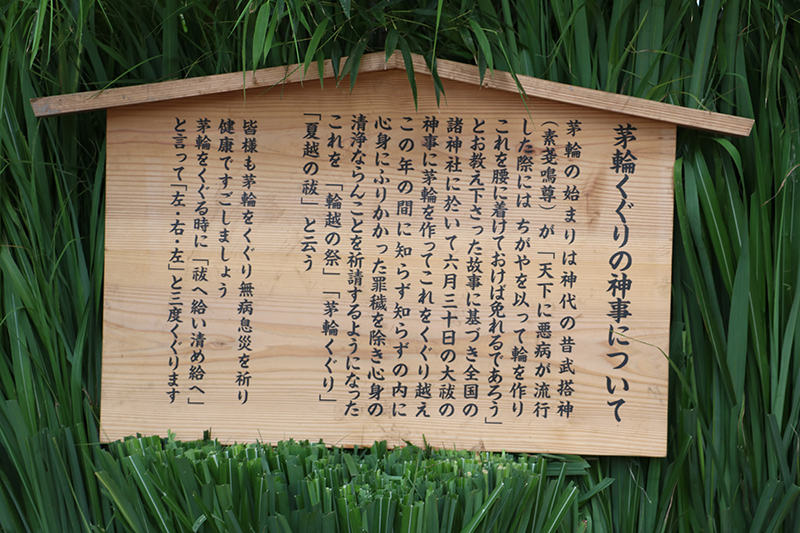 茅輪くぐりの神事について
茅輪の始まりは神代の昔武搭神
（素戔鳴尊）が「天下に悪病が流行
した際には ちがやを以って輪を作り
これを腰に着けておけば免れるであろう」
とお教え下さった故事に基づき全国の
諸神社に於いて六月三十日の大祓の
神事に茅輪を作ってこれをくぐり越え
この年の間に知らず知らずの内に
心身にふりかかった罪穢を除き心身の
清浄ならんことを祈請するようになった
これを 「輪越の祭」「茅輪くぐり」
「夏越の祓」と云う
皆様も茅輪をくぐり無病息災を祈り
健康ですごしましょう
茅輪をくぐる時に「祓へ給い清め給へ」
と言って「左・右・左」と三度くぐります